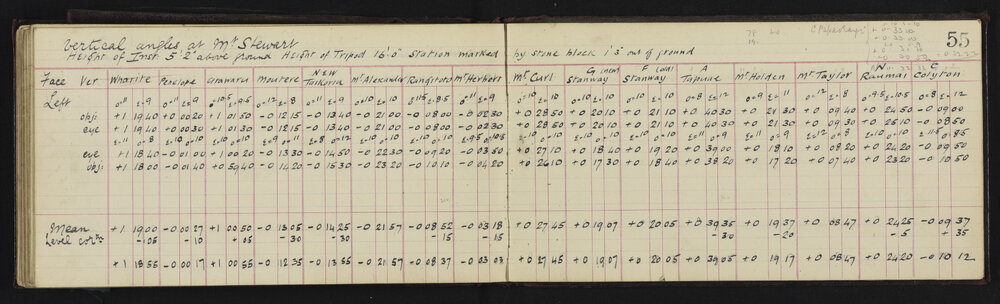 Vertical angles at Mt Stewart
Height of Inst 5'2" above ground Height of Tripod 16'0" Station marked by stone block 1'3" out of ground
55
Face Ver Wharite Perclope Arawaru Moutere NEW Taikorea Mt Alexander Rangitoto Mt Herbert Mt Curl Stanway F (old) Stanway A Tapuae Mt Holden Mt Taylor N Raumai E Colyton
Left o=8 E=9 o=11 E=9 o=10.5 E=9.5 o=12 E=8 o=11 E=9 o=10 E=10 o=11.5 E=8.5 o=11 E=9 o=10 E=10 o=10 E=10 o=10 E=10 o=8 E=12 o=9 E=11 o=12 E=8 o=9.5 E=10.5 o=8 E=12
obj: +1 19 40 +0 00 20 +1 01 50 -0 12 15 -0 13 40 -0 21 00 -0 08 00 -0 02 30 +0 28 50 +0 20 10 +0 21 10 +0 40 30 +0 21 30 +0 09 40 +0 24 50 -0 09 00
eye +1 19 40 +0 00 30 +1 01 30 -0 12 15 -0 13 40 -0 21 00 -0 08 00 -0 02 30 +0 28 50 +0 20 10 +0 21 10 +0 40 30 +0 21 30 +0 09 30 +0 25 10 -0 08 50
eye +1 18 40 -0 01 00 +1 00 20 -0 13 30 -0 14 50 -0 22 30 -0 09 20 -0 03 50 +0 27 10 +0 18 40 +0 19 20 +0 39 00 +0 18 10 +0 08 20 +0 24 20 -0 09 50
obj: +1 18 00 -0 01 40 +0 59 40 -0 14 20 -0 15 30 -0 23 20 -0 10 10 -0 04 20 +0 26 10 +0 17 30 +0 18 40 +0 38 20 +0 17 20 +0 07 40 +0 23 20 -0 10 50
Mean +1 19 00 -0 00 27 +1 00 50 -0 13 05 -0 14 25 -0 21 57 -0 08 52 -0 03 18 +0 27 45 +0 19 07 +0 20 05 +0 39 35 +0 19 37 +0 08 47 +0 24 25 -0 09 37
Level corrn -05 -10 +05 -30 -30 -15 -15 -30 -20 -5 +35
+1 18 55 -0 00 17 +1 00 55 -0 12 35 -0 13 55 -0 21 57 -0 08 37 -0 03 03 +0 27 45 +0 19 07 +0 20 05 +0 39 05 +0 19 17 +0 08 47 +0 24 20 -0 10 12